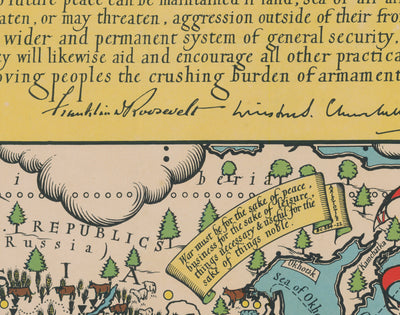 future peace can be maintained if land, sea or air
aten, or may threaten, aggression outside of their fron
wider and permanent system of general security,
y will likewise aid and encourage all other practica
oving peoples the crushing burden of armament
Franklin D Roosevelt
Winston S. Churchill
i
b e r i
REPUBLICS
Russia)
I A
War must be for the sake of peace,
business for the sake of leisure,
things necessary & useful for the
sake of things noble.
Okhotsk
Kamchatka
Sea of Okh